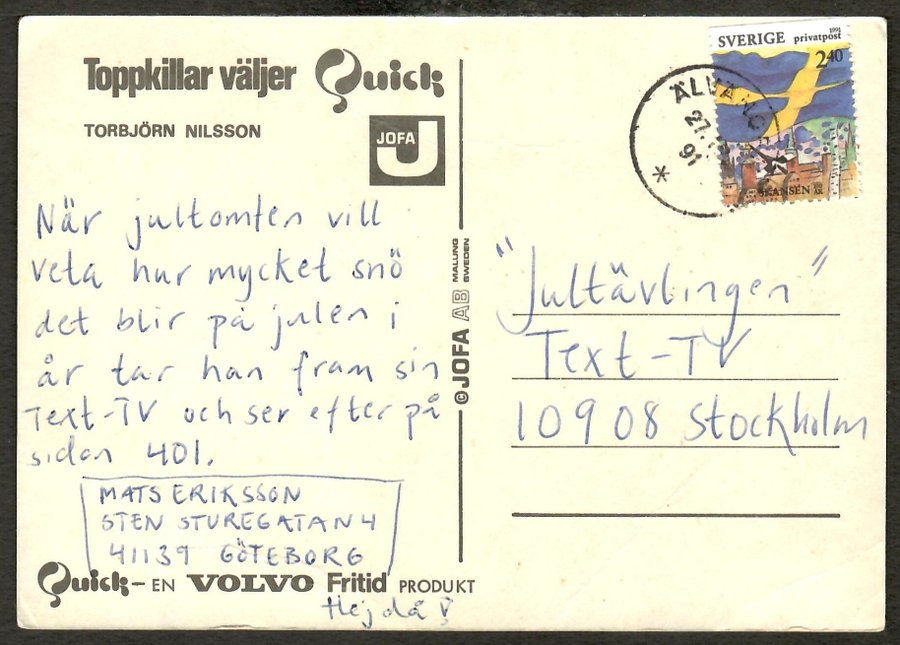 Toppkillar väljer Quick
TORBJÖRN NILSSON
JOFA
När jultomten vill
veta hur mycket snö
det blir på julen i
år tar han fram sin
Text-TV och ser efter på
sidan 401.
MATS ERIKSSON
STEN STUREGATAN 4
41139 GÖTEBORG
Quick - EN VOLVO Fritid PRODUKT
Hej då!
© JOFA AB MALUNG SWEDEN
SVERIGE privatpost 1991
240
SKANSEN
27
91
"Jultävlingen"
Text-TV
10908 Stockholm